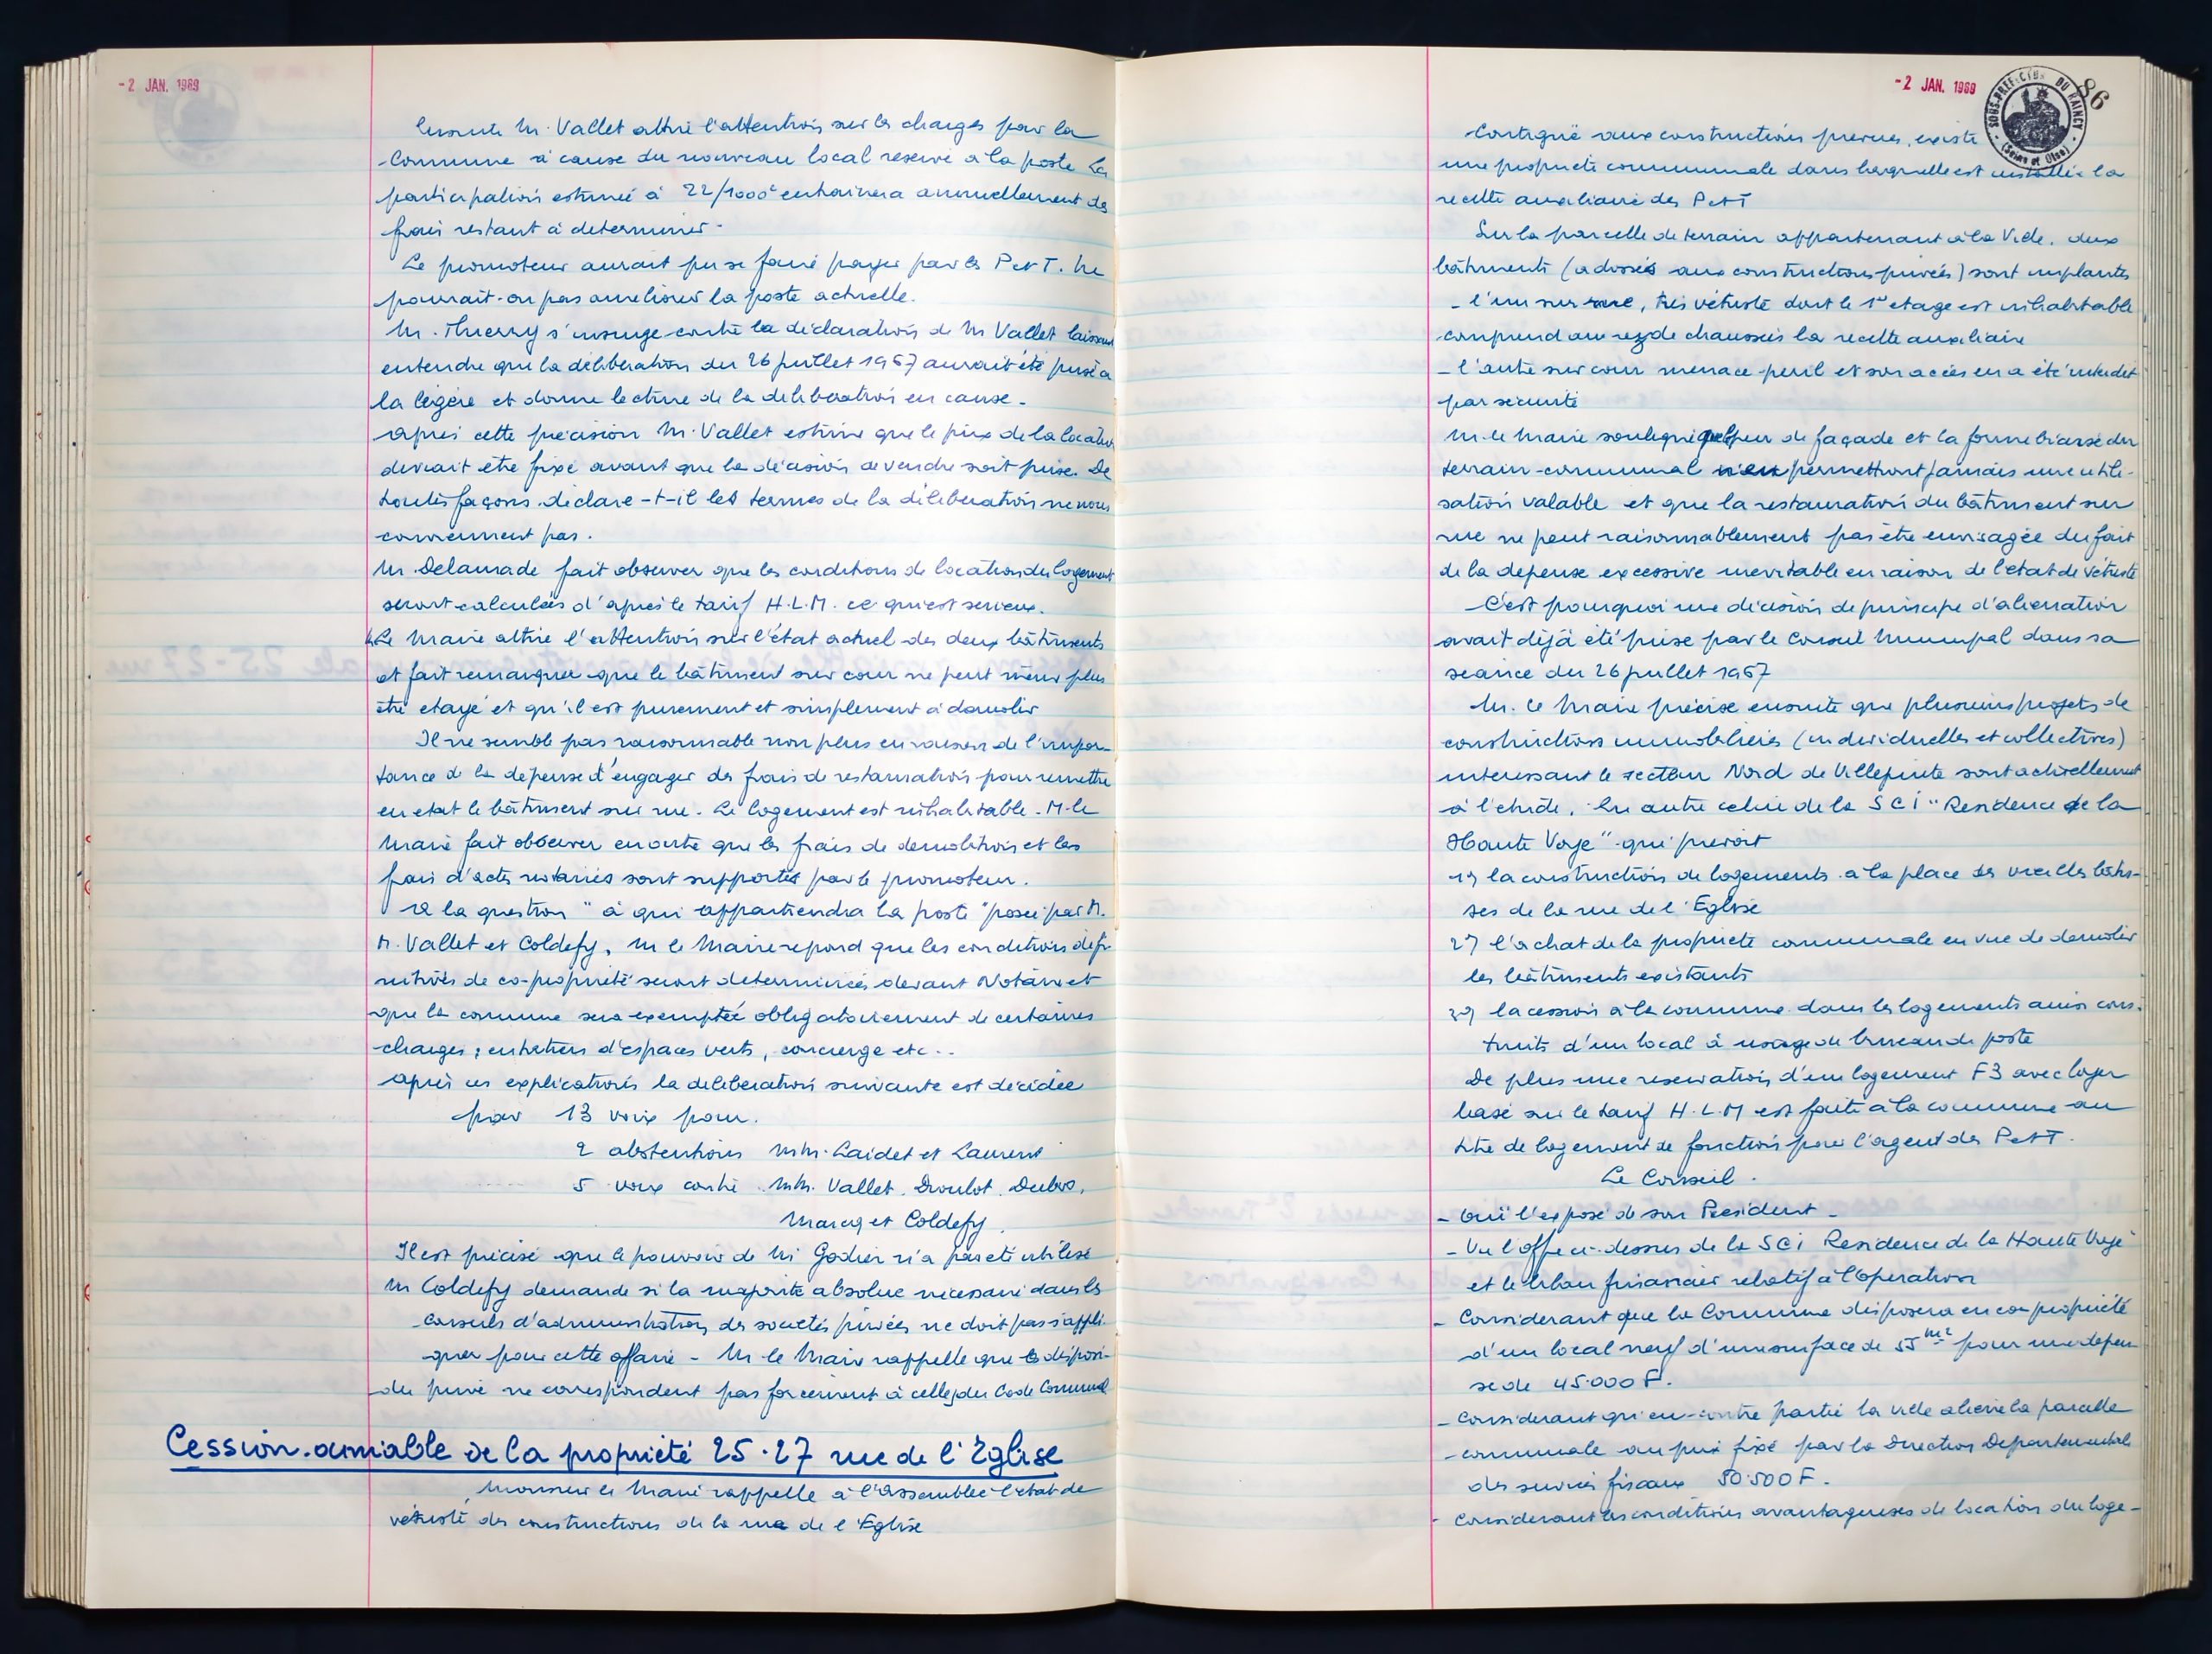 - 2 JAN. 1969
Ensuite M. Vallet attire l'attention sur les charges pour la
Commune à cause du nouveau local réservé à la poste La
participation estimée à 22/1000e entrainera annuellement des
frais restant à determiner.
Le promoteur aurait pu se faire payer par les P et T. Ne
pourrait-on pas ameliorer la poste actuelle.
M. Thierry s'insurge contre la déclaration de M Vallet laissant
entendre que la déliberation du 26 juillet 1967 aurait été prise à
la légère et donne lecture de la deliberation en cause.
après cette précision M. Vallet estime que le prix de la location
devrait être fixé avant que la décision de vendre soit prise. De
toutes façons déclare-t-il les termes de la déliberation ne nous
conviennent pas.
M Delamade fait observer que les conditions de location du logement
seront calculées d'après le tarif H.L.M. ce qui est serieux.
Le Maire attire l'attention sur l'état actuel des deux bâtiments
et fait remarquer que le bâtiment sur cour ne peut même plus
être etayé et qu'il est purement et simplement à demolir
Il ne semble pas raisonnable non plus en raison de l'impor-
tance de la depense d'engager des frais de restauration pour remettre
en etat le bâtiment sur rue. Le logement est inhabitable. M. le
Maire fait observer en outre que les frais de demolition et les
frais d'actes notariés sont supportés par le promoteur.
à la question " à qui appartiendra la poste " posée par M.
M. Vallet et Coldefy, M le Maire repond que les conditions défi-
nitives de co-propriété seront determinées devant Notaire et
que la commune sera exemptée obligatoirement de certaines
charges ; entretien d'espaces verts, concierge etc..
après ces explications la deliberation suivante est décidée
par 13 voix pour.
2 abstentions MM. Laidet et Laurent
5 voix contre MM. Vallet, Droulot, Dubos,
Marcq et Coldefy.
Il est précisé que le pouvoir de M Godier n'a pas eté utilisé
M Coldefy demande si la majorité absolue nécessaire dans les
conseils d'administration des societés privées ne doit pas s'appli-
quer pour cette affaire - M le Maire rappelle que les disposi-
du privé ne correspondent pas forcement à celles du Code Communal
Cession amiable de la propriété 25-27 rue de l'Eglise
Monsieur le Maire rappelle à l'Assemblée l'etat de
vétusté des constructions de la rue de l'Eglise
- 2 JAN. 1969
SOUS-PREFECTURE DU RAINCY
(Seine et Oise)
86
Contiguë aux constructions prevues, existe
une propriété communale dans laquelle est installée la
recette auxiliaire des P et T
Sur la parcelle de terrain appartenant à la Ville, deux
bâtiments (adossés aux constructions privées) sont implantés
- l'un sur rue, très vétuste dont le 1er etage est inhabitable
comprend au rez de chaussée la recette auxiliaire
- l'autre sur cour menace péril et son accès en a été interdit
par sécurité
M. le Maire souligne que le peu de façade et la forme biaisé du
terrain communal n'en permettront jamais une utili-
sation valable et que la restauration du bâtiment sur
rue ne peut raisonnablement pas être envisagée du fait
de la depense excessive inevitable en raison de l'etat de vétusté
C'est pourquoi une décision de principe d'alienation
avait déjà été prise par le Conseil Municipal dans sa
seance du 26 juillet 1967
M. le Maire précise ensuite que plusieurs projets de
constructions immobilieres (individuelles et collectives)
interessant le secteur Nord de Villepinte sont actuellement
à l'etude. En autre celui de la SCI " Residence de la
Haute Voye " qui prévoit
1°) la construction de logements à la place des vieilles bâtis-
ses de la rue de l'Eglise
2°) l'achat de la propriété communale en vue de demolir
les bâtiments existants
3°) la cession à la commune dans les logements ainsi cons-
truits d'un local à usage de bureau de poste
De plus une reservation d'un logement F3 avec loyer
basé sur le tarif H.L.M est faite à la commune au
titre de logement de fonction pour l'agent des P et T.
Le Conseil.
- Ouï l'exposé de son President -
- Vu l'offre ci-dessus de la SCI Residence de la Haute Voye
et le bilan financier relatif à l'Operation
- Considerant que la Commune disposera en co-propriété
d'un local neuf d'une surface de 55 m2 pour une depen
se de 45.000 F.
- Considerant qu'en contre partie la ville aliène la parcelle
communale au prix fixé par la Direction Departementale
des services fiscaux 50.500 F.
- Considerant les conditions avantageuses de location du loge-